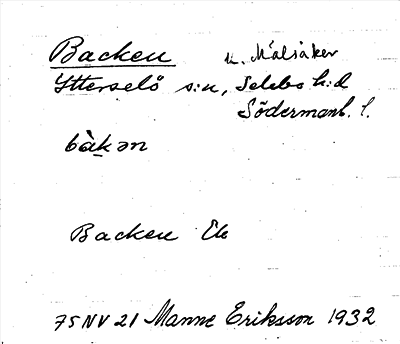 Backen u. Mälsåker
Ytterselö s:n, Selebo h:d
Södermanl. l.
bàkən
Backen Ek
75 NV 21 Manne Eriksson 1932